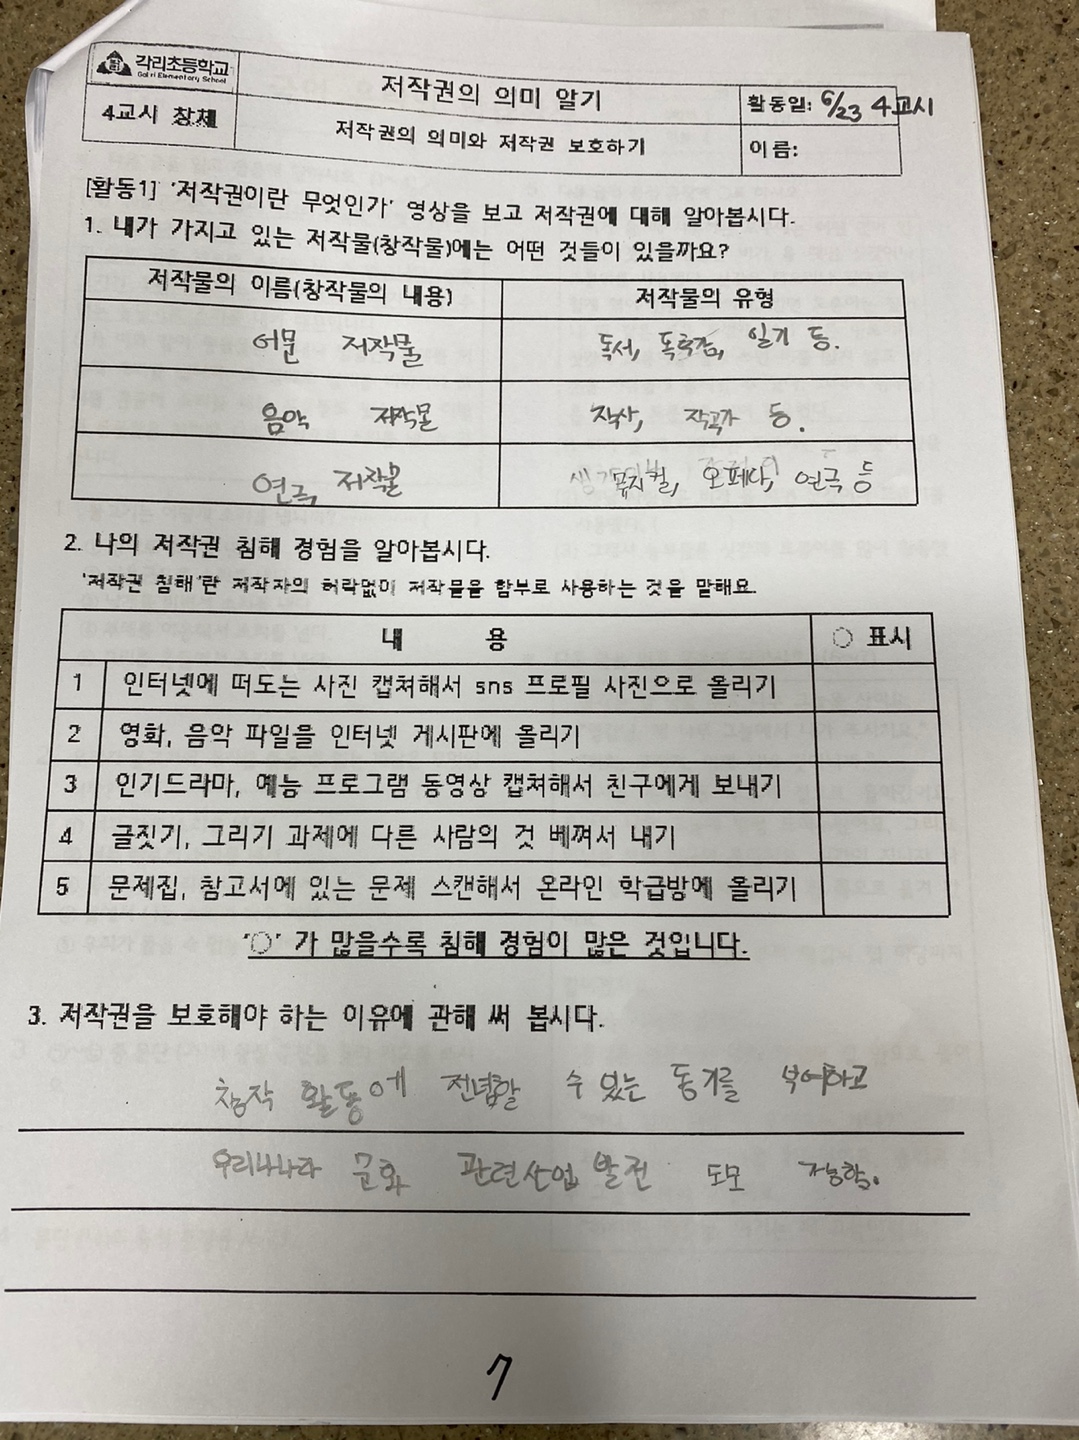 각리초등학교
Gakri Elementary School
저작권의 의미 알기
활동일: 6/23 4교시
4교시 창체
저작권의 의미와 저작권 보호하기
이름:
[활동1] '저작권이란 무엇인가' 영상을 보고 저작권에 대해 알아봅시다.
1. 내가 가지고 있는 저작물(창작물)에는 어떤 것들이 있을까요?
저작물의 이름(창작물의 내용) 저작물의 유형
어문 저작물 독서, 독후감, 일기 등.
음악 저작물 작사, 작곡가 등.
연극 저작물 뮤지컬, 오페라, 연극 등
2. 나의 저작권 침해 경험을 알아봅시다.
'저작권 침해'란 저작자의 허락없이 저작물을 함부로 사용하는 것을 말해요.
내 용 ○ 표시
1 인터넷에 떠도는 사진 캡쳐해서 sns 프로필 사진으로 올리기
2 영화, 음악 파일을 인터넷 게시판에 올리기
3 인기드라마, 예능 프로그램 동영상 캡쳐해서 친구에게 보내기
4 글짓기, 그리기 과제에 다른 사람의 것 베껴서 내기
5 문제집, 참고서에 있는 문제 스캔해서 온라인 학급방에 올리기
'○' 가 많을수록 침해 경험이 많은 것입니다.
3. 저작권을 보호해야 하는 이유에 관해 써 봅시다.
창작 활동에 전념할 수 있는 동기를 부여하고
우리나라 문화 관련산업 발전 도모
7